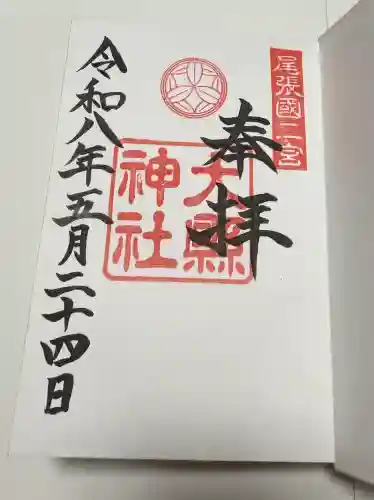 尾張國二宮
奉拝
大縣
神社
令和八年五月二十四日